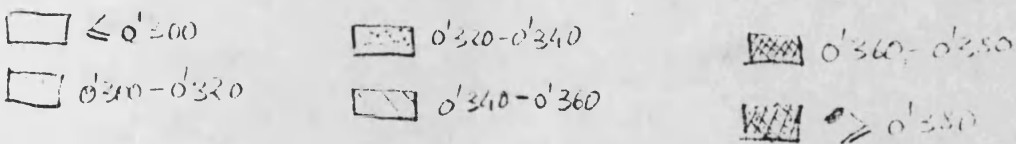 ≤ 0'300
0'300-0'320
0'320-0'340
0'340-0'360
0'360-0'380
≥ 0'380